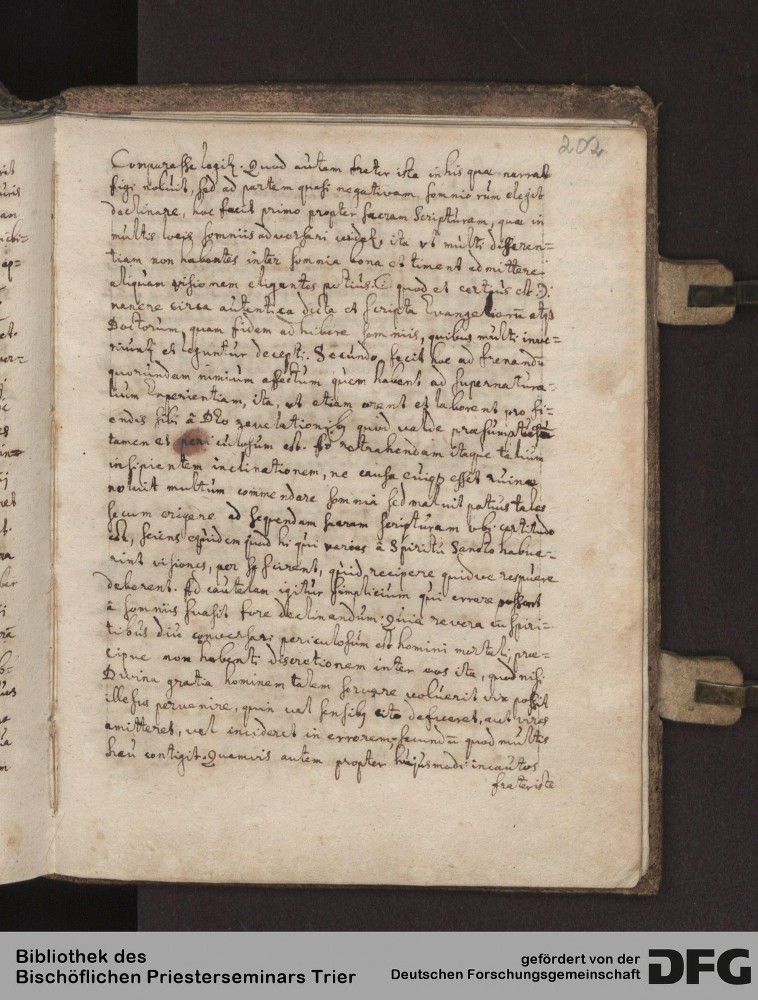 202
Comparasse legit[ur]. Quod autem frater iste in his quæ narrat
figi noluit, sed ad partem quasi negativam somniorum elegit
declinare, hoc facit primo propter sacram Scripturam, quæ in
multis locis somniis adversari videt[ur], ita vt multi differen-
tiam non habentes inter somnia bona et timent admittere
aliquam visionem eligentes potius quod et certius est
manere circa autentica dicta et scripta Evangeliorū
Doctorum, quam fidem adhibere somniis, quibus multi inve-
et leguntur decepti. Secundo fecit hoc ad frenandū
quorundam nimium affectum quem habent ad supernatura-
lium Experientiam, ita, vt etiam orent et laborent pro fi-
endis sibi â DEo revelationib[us] quod valde præsumptuosū
tamen et periculosum est. Ad retrahendam itaque talium
insipientem inclinationem, ne causa cuiq[uam] esset ruinæ
noluit multum commendare somnia sed maluit potius tales
secum erigere ad sequendam sacram scripturam vbi certitudo
est, sciens equidem quod hi qui varias â Spiritu Sancto habue-
rint visiones, per se scirent, quid recipere quidve respuere
deberent. Ad cautelam igitur simplicium qui errare possent
â somniis suasit fore declinandum: Quia revera cū spiri-
tibus diu conversari periculosum est homini mortali, præ-
cipue non habenti discretionem inter eos ita, quod nisi
Divina gratia hominem talem servare voluerit vix possit
illesus pervenire, quin vel sensib[us] cito deficeret, aut vires
amitteret, vel incideret in errorem, secundū quod multis
heu contigit. Quamvis autem propter hujusmodi incautos
frater iste
Bibliothek des
Bischöflichen Priesterseminars Trier
gefördert von der
Deutschen Forschungsgemeinschaft
DFG